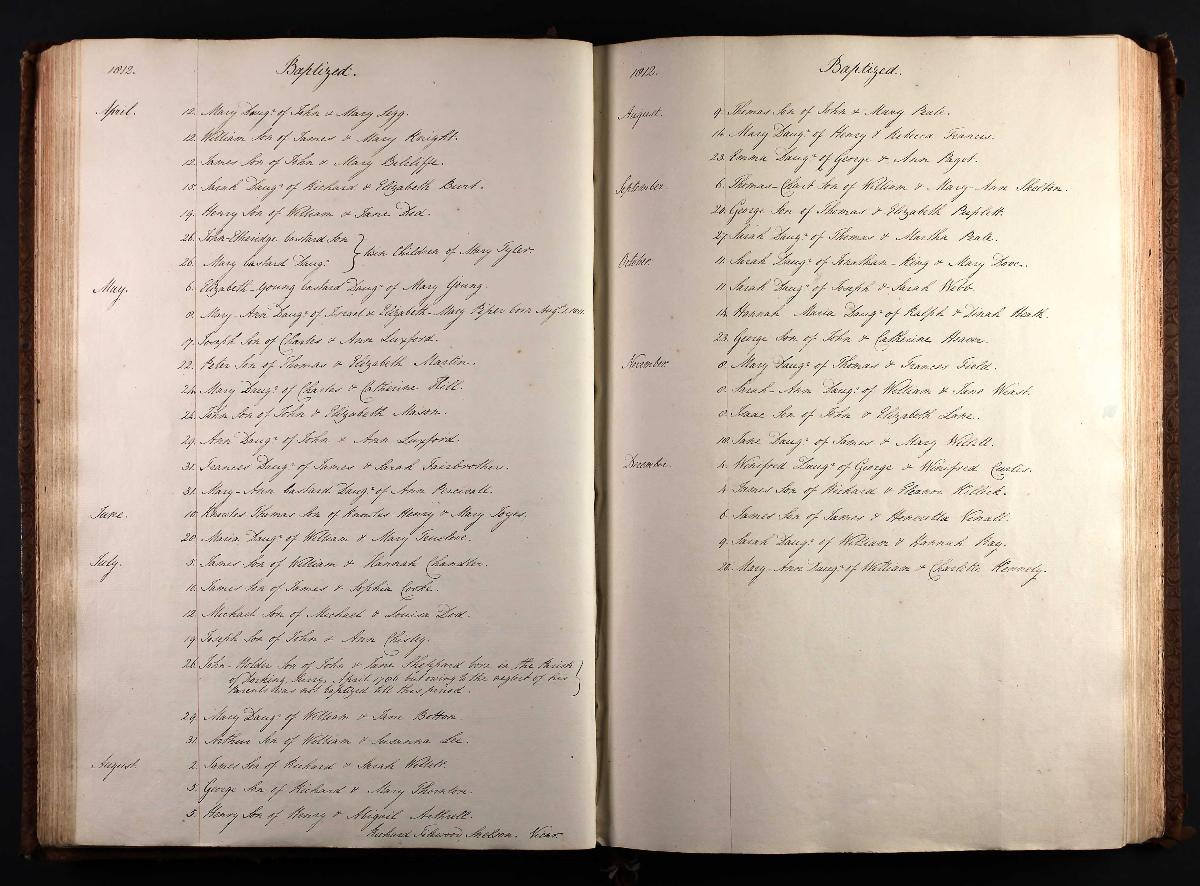 1812. Baptized.
April. 12. Mary Daugr. of John & Mary
12. William Son of James & Mary Knight.
12. James Son of John & Mary Belcliffe.
15. Sarah Daugr. of Richard & Elizabeth Burt.
19. Henry Son of William & Jane Dod.
26. John-Etheridge bastard Son
26. Mary bastard Daugr. } twin Children of Mary Tyler.
May. 6. Elizabeth-Young bastard Daugr. of Mary Young.
8. Mary-Ann Daugr. of Israel & Elizabeth-Mary Piper born Augst.
17. Joseph Son of Charles & Ann Luxford.
22. Peter Son of Thomas & Elizabeth Martin.
24. Mary Daugr. of Charles & Catherine Hill.
24. John Son of John & Elizabeth Mason.
29. Ann Daugr. of John & Ann Luxford.
31. Frances Daugr. of James & Sarah Fairbrother.
31. Mary-Ann bastard Daugr. of Ann Percivall.
June. 10. Knowles Thomas Son of Knowles Henry & Mary
20. Maria Daugr. of William & Mary
July. 5. James Son of William & Hannah Chandler.
10. James Son of James & Sophia Cooke.
12. Michael Son of Michael & Louisa Dod.
19. Joseph Son of John & Ann Chisley.
26. John-Holder Son of John & Jane Sheppard born in the Parish
of Dorking Surry, April 1786 but owing to the neglect of his
Parents was not baptized till this period.
29. Mary Daugr. of William & Jane Botton.
31. Arthur Son of William & Susanna Lee.
August. 2. James Son of Richard & Sarah Willett.
5. George Son of Richard & Mary Thornton.
5. Henry Son of Henry & Abigail
Richard Fiewood Snelson. Vicar.
1812. Baptized.
August. 9. Thomas Son of John & Mary Peale.
14. Mary Daugr. of Henry & Rebecca Francis.
23. Emma Daugr. of George & Ann Paget.
September. 6. Thomas-Chart Son of William & Mary-Ann Skelton.
20. George Son of Thomas & Elizabeth
27. Sarah Daugr. of Thomas & Martha Peale.
October. 11. Sarah Daugr. of Jonathan-King & Mary Dove.
11. Sarah Daugr. of Joseph & Sarah Webb.
14. Hannah Maria Daugr. of Ralph & Dinah Heath.
23. George Son of John & Catherine Heaver.
November. 8. Mary Daugr. of Thomas & Frances Field.
8. Sarah-Ann Daugr. of William & Jane West.
8. Isaac Son of John & Elizabeth Lane.
18. Jane Daugr. of James & Mary Willett.
December. 4. Winifred Daugr. of George & Winifred Curtis.
4. James Son of Richard & Eleanor Killick.
6. James Son of James & Henrietta Vinall.
9. Sarah Daugr. of William & Hannah Hay.
20. Mary-Ann Daugr. of William & Charlotte Kennely.